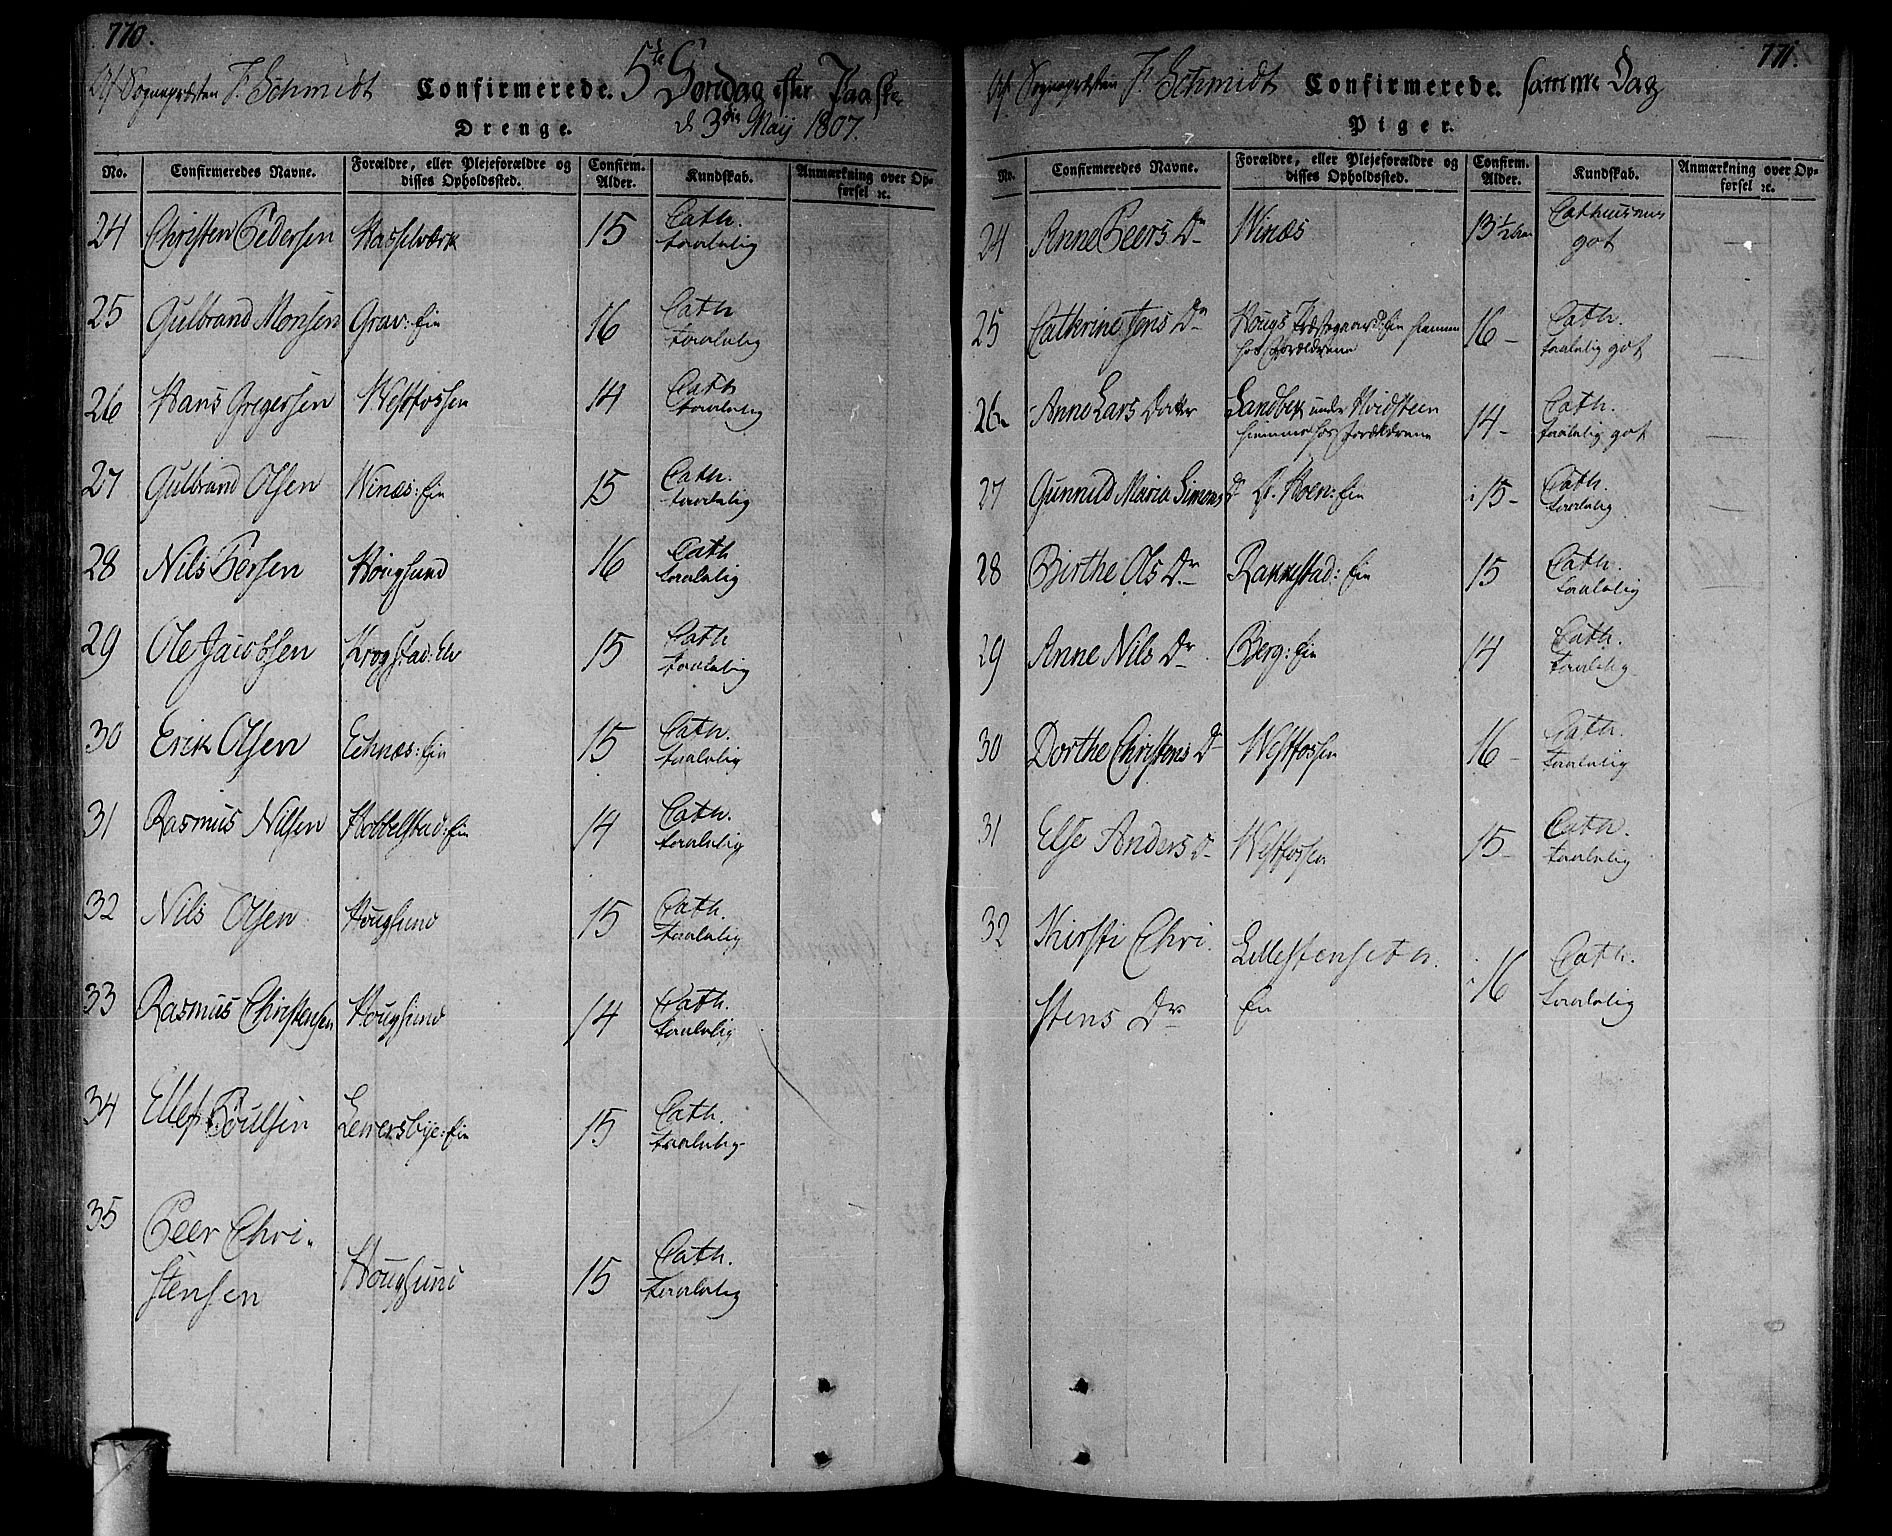 770.
Af Sognepræsten F. Schmidt Confirmerede. 5te Søndag efter Paaske
Drenge. d 3die Maij 1807.
No. Confirmeredes Navne. Forældre, eller Plejeforældre og disses Opholdssted. Confirm. Alder. Kundskab. Anmærkning over Opførsel ꝛc.
24 Christen Pedersen Hasselværk 15 Cath.
taalelig
25 Gulbrand Monsen Grav: Ein 16 Cath
taalelig
26 Hans Gregersen Westfossen 14 Cath
taalelig
27 Gulbrand Olsen Winæs: Ein 15 Cath.
taalelig
28 Nils Persen Hougsund 16 Cath
taalelig
29 Ole Jacobsen Krogstad: Elv 15 Cath
taalelig
30 Erik Olsen Echnæs: Ein 15 Cath.
taalelig
31 Rasmus Nilsen Hobbelstad: Ein 14 Cath.
taalelig
32 Nils Olsen Hougsund 15 Cath.
taalelig
33 Rasmus Christensen Hougsund 14 Cath.
taalelig
34 Ellef Poulsen Leversbye: Ein 15 Cath.
taalelig
35 Peer Chri-
stensen Hougsund 15 Cath.
taalelig
771.
Af Sognepræsten F. Schmidt Confirmerede. samme Dag
Piger.
No. Confirmeredes Navne. Forældre, eller Plejeforældre og disses Opholdssted. Confirm. Alder. Kundskab. Anmærkning over Opførsel ꝛc.
24 Anne Peers Dr Winæs 13 1/2 Cathisimus
got
25 Cathrine Jens Dr Hougs Præstegaard: Ein hjemme
hos Forældrene 16 Cath.
taalelig got
26 Anne Lars Datter Sandbek under Hvidsteen
hjemme hos Forældrene 14 Cath.
taalelig got
27 Gunnild Maria Simons D St. Hoen: Ein 15 Cath.
taalelig
28 Birthe Ols Dr Rannestad: Ein 15 Cath.
taalelig
29 Anne Nils Dr Berg: Ein 14 Cath.
taalelig
30 Dorthe Christens D Westfossen 16 Cath.
taalelig
31 Else Anders D Westfossen 15 Cath.
taalelig
32 Kirsti Chri-
stens Dr Lillestenseth.
Ein 16 Cath.
taalelig